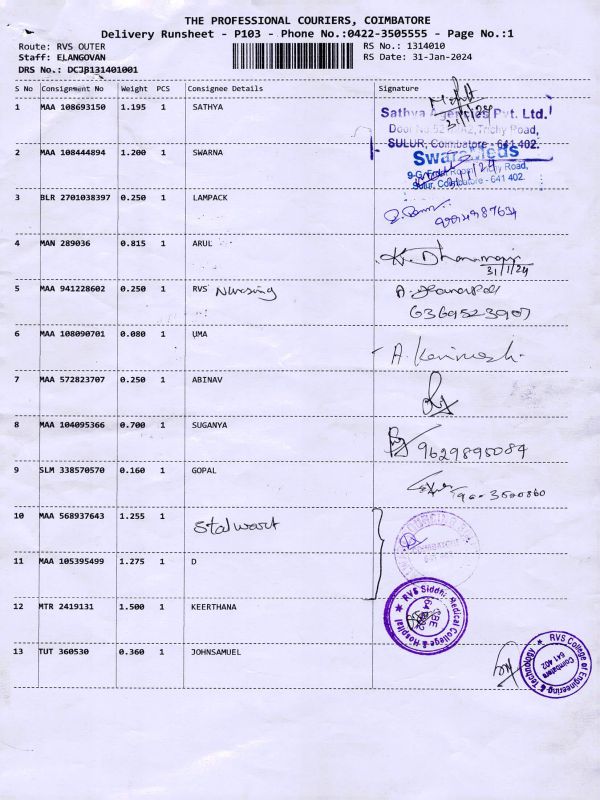 THE PROFESSIONAL COURIERS, COIMBATORE
Delivery Runsheet - P103 - Phone No.:0422-3505555 - Page No.:1
Route: RVS OUTER RS No.: 1314010
Staff: ELANGOVAN RS Date: 31-Jan-2024
DRS No.: DCJB131401001
S No Consignment No Weight PCS Consignee Details Signature
1 MAA 108693150 1.195 1 SATHYA
31/1/24
Sathya Agencies Pvt. Ltd.
Trichy Road,
SULUR, Coimbatore - 641 402.
2 MAA 108444894 1.200 1 SWARNA
Road,
Sulur, Coimbatore - 641 402.
3 BLR 2701038397 0.250 1 LAMPACK
4 MAN 289036 0.815 1 ARUL
31/1/24
5 MAA 941228602 0.250 1 RVS Nursing
6369523907
6 MAA 108090701 0.080 1 UMA
7 MAA 572823707 0.250 1 ABINAV
8 MAA 104095366 0.700 1 SUGANYA 9629895084
9 SLM 338570570 0.160 1 GOPAL
10 MAA 568937643 1.255 1 Stalwart
COIMBATORE
11 MAA 105395499 1.275 1 D
12 MTR 2419131 1.500 1 KEERTHANA
RVS Siddha Medical College & Hospital
13 TUT 360530 0.360 1 JOHNSAMUEL
RVS College of Engineering & Technology
Coimbatore
641 402